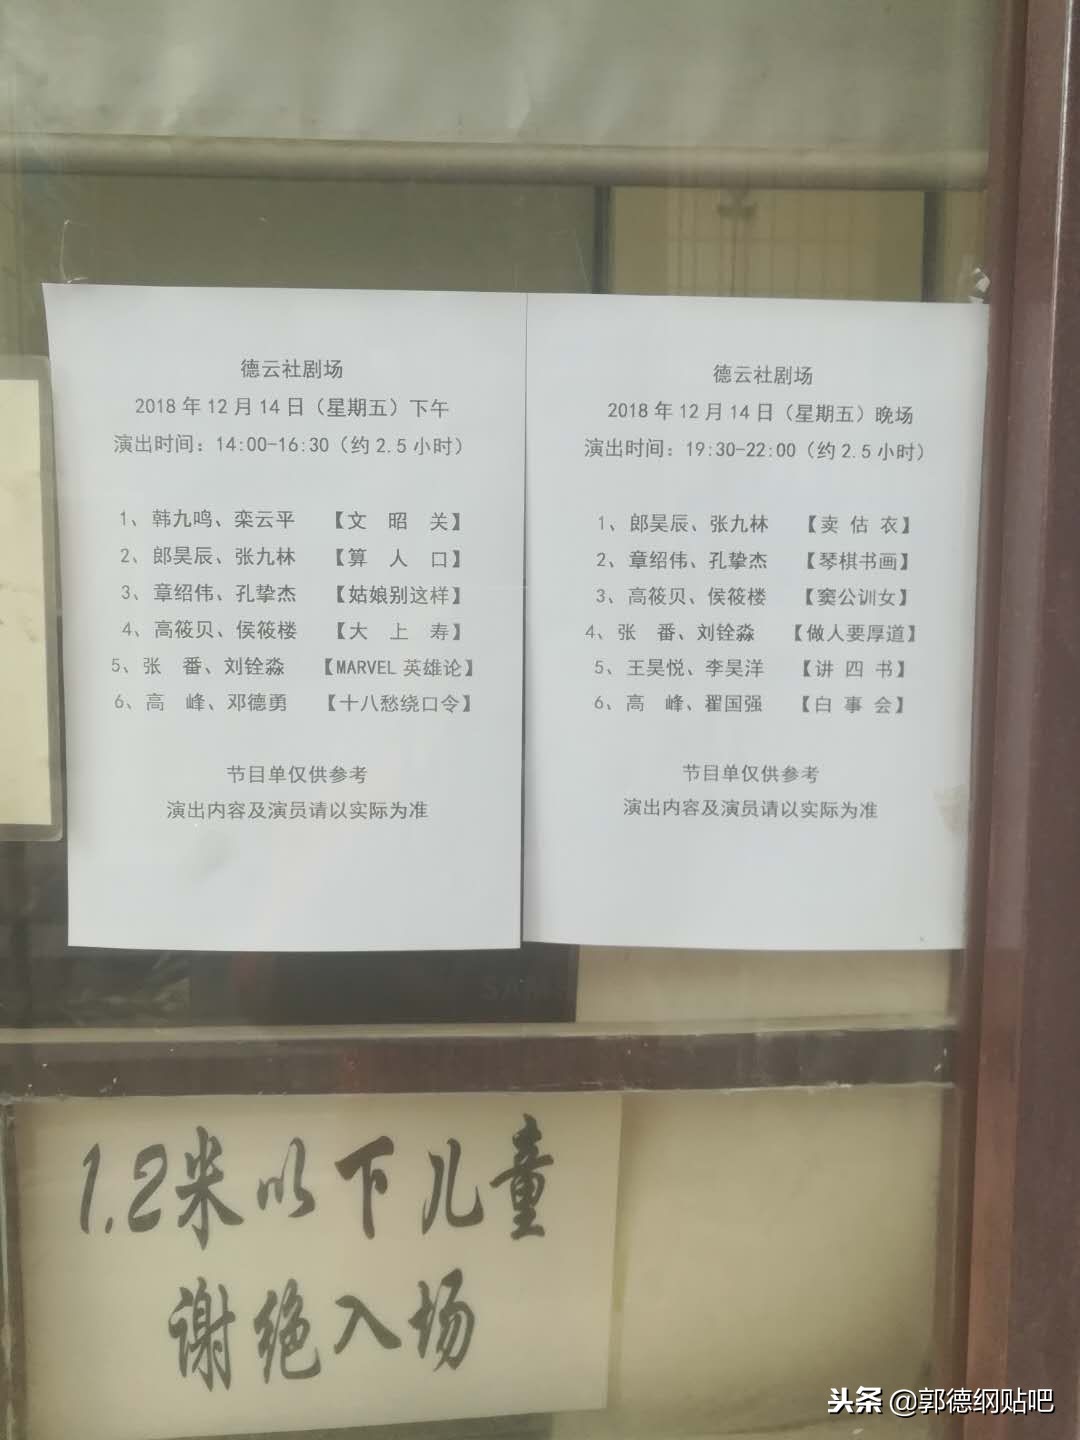 德云社剧场
2018年12月14日（星期五）下午
演出时间：14:00-16:30（约2.5小时）
1、韩九鸣、栾云平 【文 昭 关】
2、郎昊辰、张九林 【算 人 口】
3、章绍伟、孔挚杰 【姑娘别这样】
4、高筱贝、侯筱楼 【大 上 寿】
5、张 番、刘铨淼 【MARVEL英雄论】
6、高 峰、邓德勇 【十八愁绕口令】
节目单仅供参考
演出内容及演员请以实际为准
德云社剧场
2018年12月14日（星期五）晚场
演出时间：19:30-22:00（约2.5小时）
1、郎昊辰、张九林 【卖 估 衣】
2、章绍伟、孔挚杰 【琴棋书画】
3、高筱贝、侯筱楼 【窦公训女】
4、张 番、刘铨淼 【做人要厚道】
5、王昊悦、李昊洋 【讲 四 书】
6、高 峰、翟国强 【白 事 会】
节目单仅供参考
演出内容及演员请以实际为准
1.2米以下儿童
谢绝入场
头条 @郭德纲贴吧